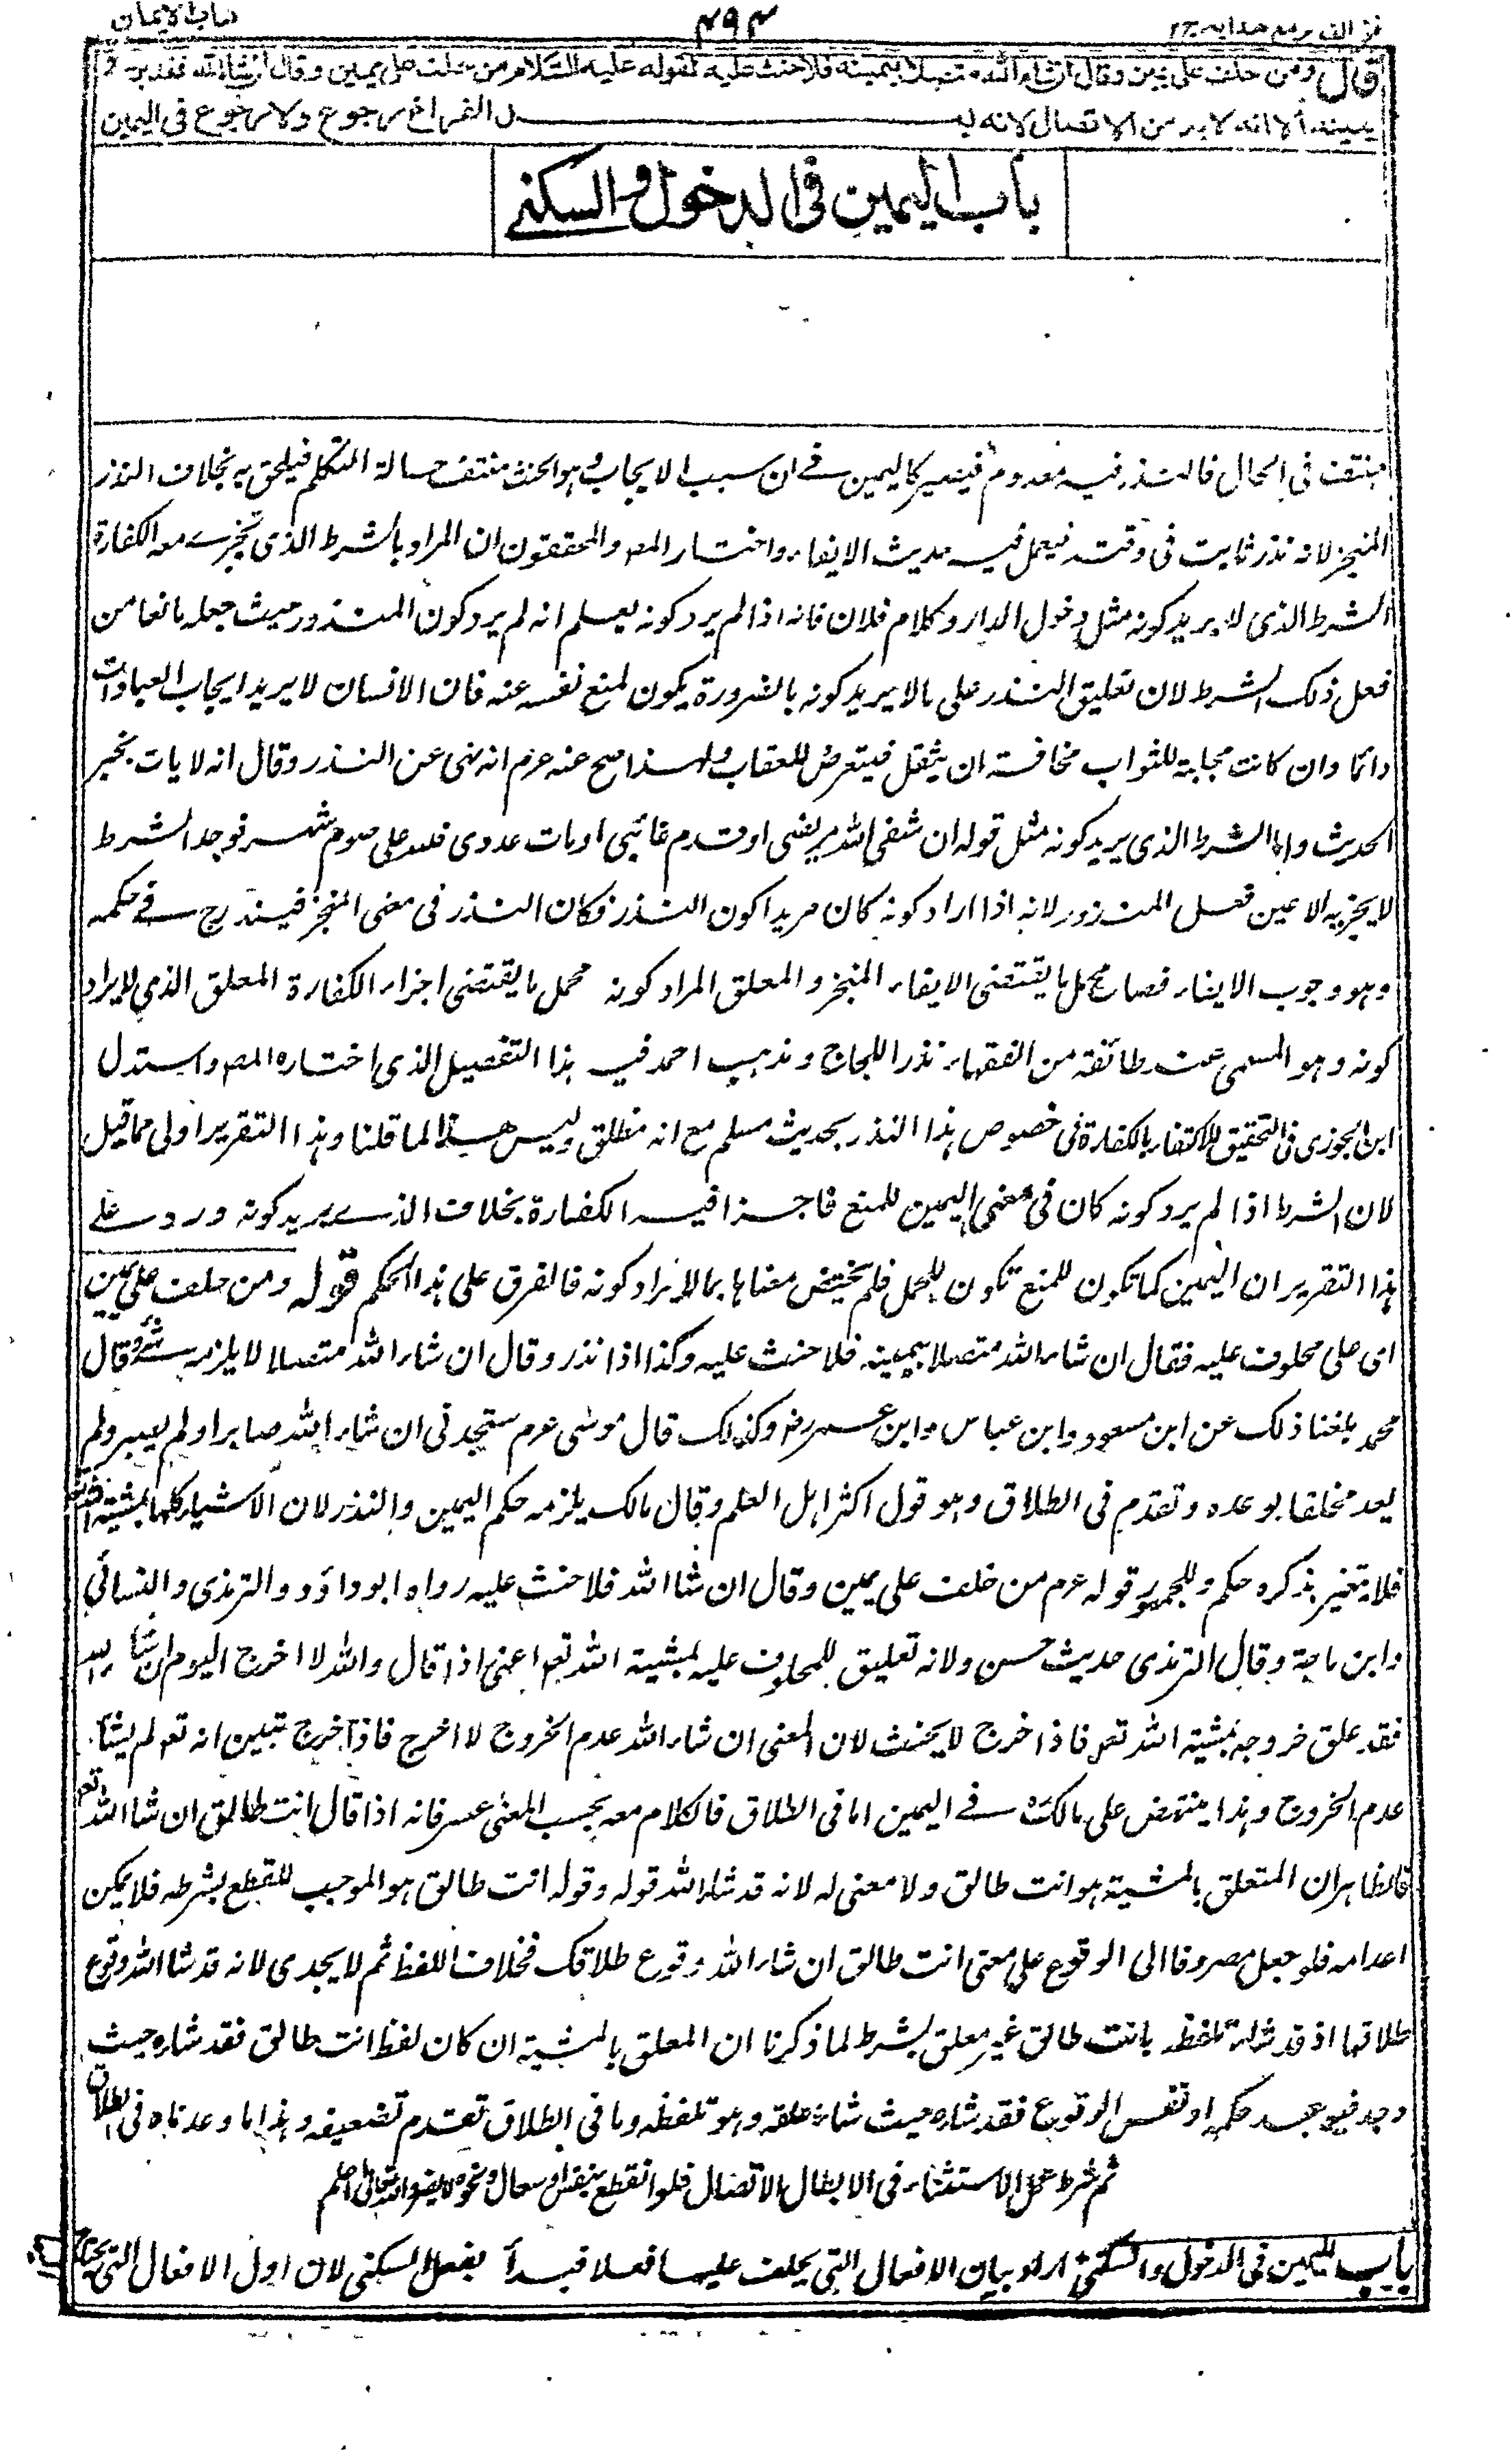 كتاب الايمان
۴۹۴
فتح القدير مع هدايه ج٢
قال ومن حلف على يمين وقال ان شاء الله متصلا بيمينه فلا حنث عليه لقوله عليه السلام من حلف على يمين وقال ان شاء الله فقد بر في
يمينه الا انه لابد من الاتصال لانه بعد الفراغ رجوع ولا رجوع في اليمين
باب اليمين في الدخول والسكنى
منتف في الحال فالنذر فيه معدوم فيصير كاليمين في ان سبب الايجاب وهو الحنث منتف حالة التكلم فيلحق به بخلاف النذر
المنجز لانه نذر ثابت في وقته فيعمل فيه حديث الايفاء واختار المصـ والمحققون ان المراد بالشرط الذى تجزى معه الكفارة
الشرط الذى لا يريد كونه مثل دخول الدار وكلام فلان فانه اذا لم يرد كونه يعلم انه لم يرد كون المنذور حيث جعله مانعا من
فعل ذلك الشرط لان تعليق النذر على مالا يريد كونه بالضرورة يكون لمنع نفسه عنه فان الانسان لا يريد ايجاب العبادات
دائما وان كانت مجلبة للثواب مخافة ان يثقل فيتعرض للعقاب ولهذا صح عنه عرم انه نهى عن النذر وقال انه لا يات بخير
الحديث واما الشرط الذى يريد كونه مثل قوله ان شفى الله مريضى او قدم غائبى او مات عدوى فلله على صوم شهر فوجد الشرط
لا يجزيه الا عين فعل المنذور لانه اذا اراد كونه كان مريدا كون النذر فكان النذر في معنى المنجز فيندرج في حكمه
وهو وجوب الايفاء فصار محمل ما يقتضى الايفاء المنجز والمعلق المراد كونه محمل ما يقتضى اجزاء الكفارة المعلق الذى لا يراد
كونه وهو المسمى عند طائفة من الفقهاء نذر اللجاج ومذهب احمد فيه هذا التفصيل الذى اختاره المصـ واستدل
ابن الجوزى في التحقيق للاكتفاء بالكفارة في خصوص هذا النذر بحديث مسلم مع انه مطلق وليس هذا الا لما قلنا وهذا التقرير اولى مما قيل
لان الشرط اذا لم يرد كونه كان في معنى اليمين للمنع فاجزا فيه الكفارة بخلاف الذى يريد كونه ورد على
هذا التقرير ان اليمين كما تكون للمنع تكون للحمل فلم يختص معناها بما لا يراد كونه فالفرق على هذا الحكم قوله ومن حلف على يمين
اى على محلوف عليه فقال ان شاء الله متصلا بيمينه فلا حنث عليه وكذا اذا نذر وقال ان شاء الله متصلا لا يلزمه شئ وقال
محمد بلغنا ذلك عن ابن مسعود وابن عباس وابن عمر رضـ وكذلك قال موسى عرم ستجدنى ان شاء الله صابرا ولم يصبر ولم
يعد مخلفا بوعده وتقدم في الطلاق وهو قول اكثر اهل العلم وقال مالك يلزمه حكم اليمين والنذر لان الاشياء كلها بمشية الله
فلا يتغير بذكره حكم وللجمهور قوله عرم من حلف على يمين وقال ان شاالله فلا حنث عليه رواه ابو داؤد والترمذى والنسائى
وابن ماجة وقال الترمذى حديث حسن ولانه تعليق للمحلوف عليه بمشية الله تعـ اعنى اذا قال والله لا اخرج اليوم ان شاء الله
فقد علق خروجه بمشية الله تعـ فاذا خرج لا يحنث لان المعنى ان شاء الله عدم الخروج لا اخرج فاذا خرج تبين انه تعـ لم يشأ
عدم الخروج وهذا ينتهض على مالك في اليمين اما في الطلاق فالكلام معه بحسب المعنى عسر فانه اذا قال انت طالق ان شاالله تعـ
فالظاهر ان المتعلق بالمشية هو انت طالق ولا معنى له لانه قد شاء الله قوله وقوله انت طالق هو الموجب للقطع بشرطه فلا يمكن
اعدامه فلو جعل مصروفا الى الوقوع على معنى انت طالق ان شاء الله وقوع طلاقك فخلاف اللفظ ثم لا يجدى لانه قد شاالله وقوع
طلاقها اذ قد شاء تلفظه بانت طالق غير معلق بشرط لما ذكرنا ان المعلق بالمشية ان كان لفظ انت طالق فقد شاءه حيث
وجد فيوجد حكمه او نفس الوقوع فقد شاءه حيث شاء علقه وهو تلفظه وما في الطلاق تقدم تضعيفه وهذا ما وعدناه في الطلاق
ثم شرط عمل الاستثناء في الابطال الاتصال فلو انقطع بتنفس او سعال ونحوه لا يضر والله تعالى اعلم
باب اليمين في الدخول والسكنى اراد بيان الافعال التى يحلف عليها فعلا فعلا فبدأ بفعل السكنى لان اول الافعال التى يحتاج